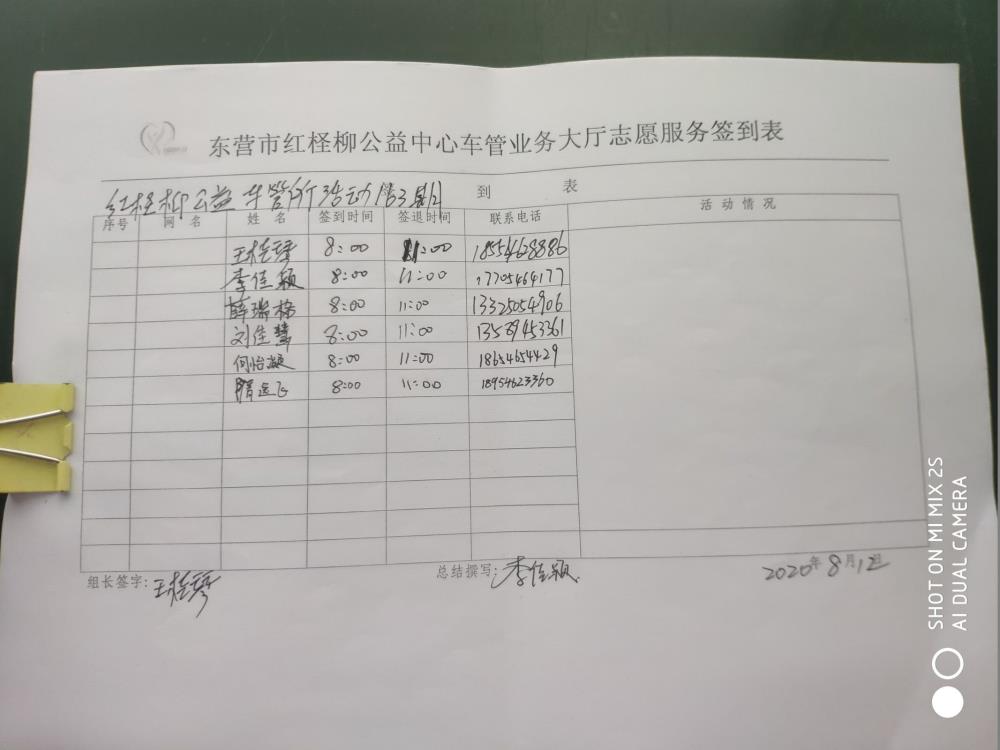 东营市红柽柳公益中心车管业务大厅志愿服务签到表
红柽柳公益 车管所活动 到 表
序号 网 名 姓 名 签到时间 签退时间 联系电话 活 动 情 况
王桂琴 8:00 11:00 18554628886
李佳颖 8:00 11:00 17705464177
薛瑞格 8:00 11:00 13325054906
刘佳慧 8:00 11:00 13589453361
何怡凝 8:00 11:00 18654654429
8:00 11:00 18954623360
组长签字: 王桂琴 总结撰写: 李佳颖 2020年8月12日
SHOT ON MI MIX 2S
AI DUAL CAMERA